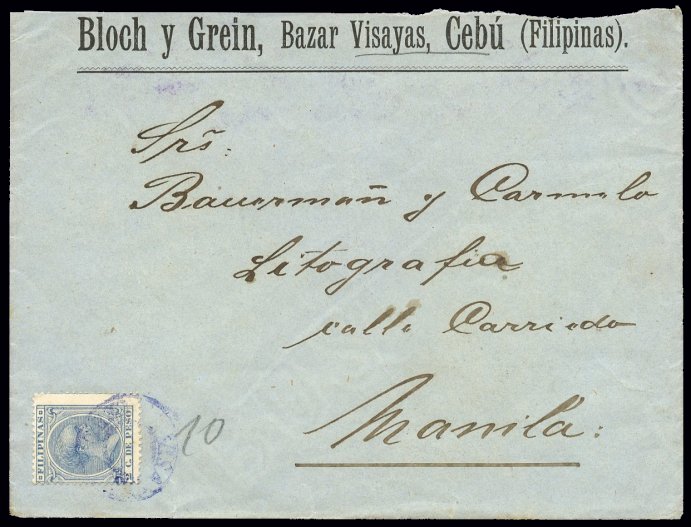 Bloch y Grein, Bazar Visayas, Cebú (Filipinas).
Srs.
Bauermañ y Carmelo
Litografia
calle Carriedo
Manila:
10
FILIPINAS
C. DE PESO